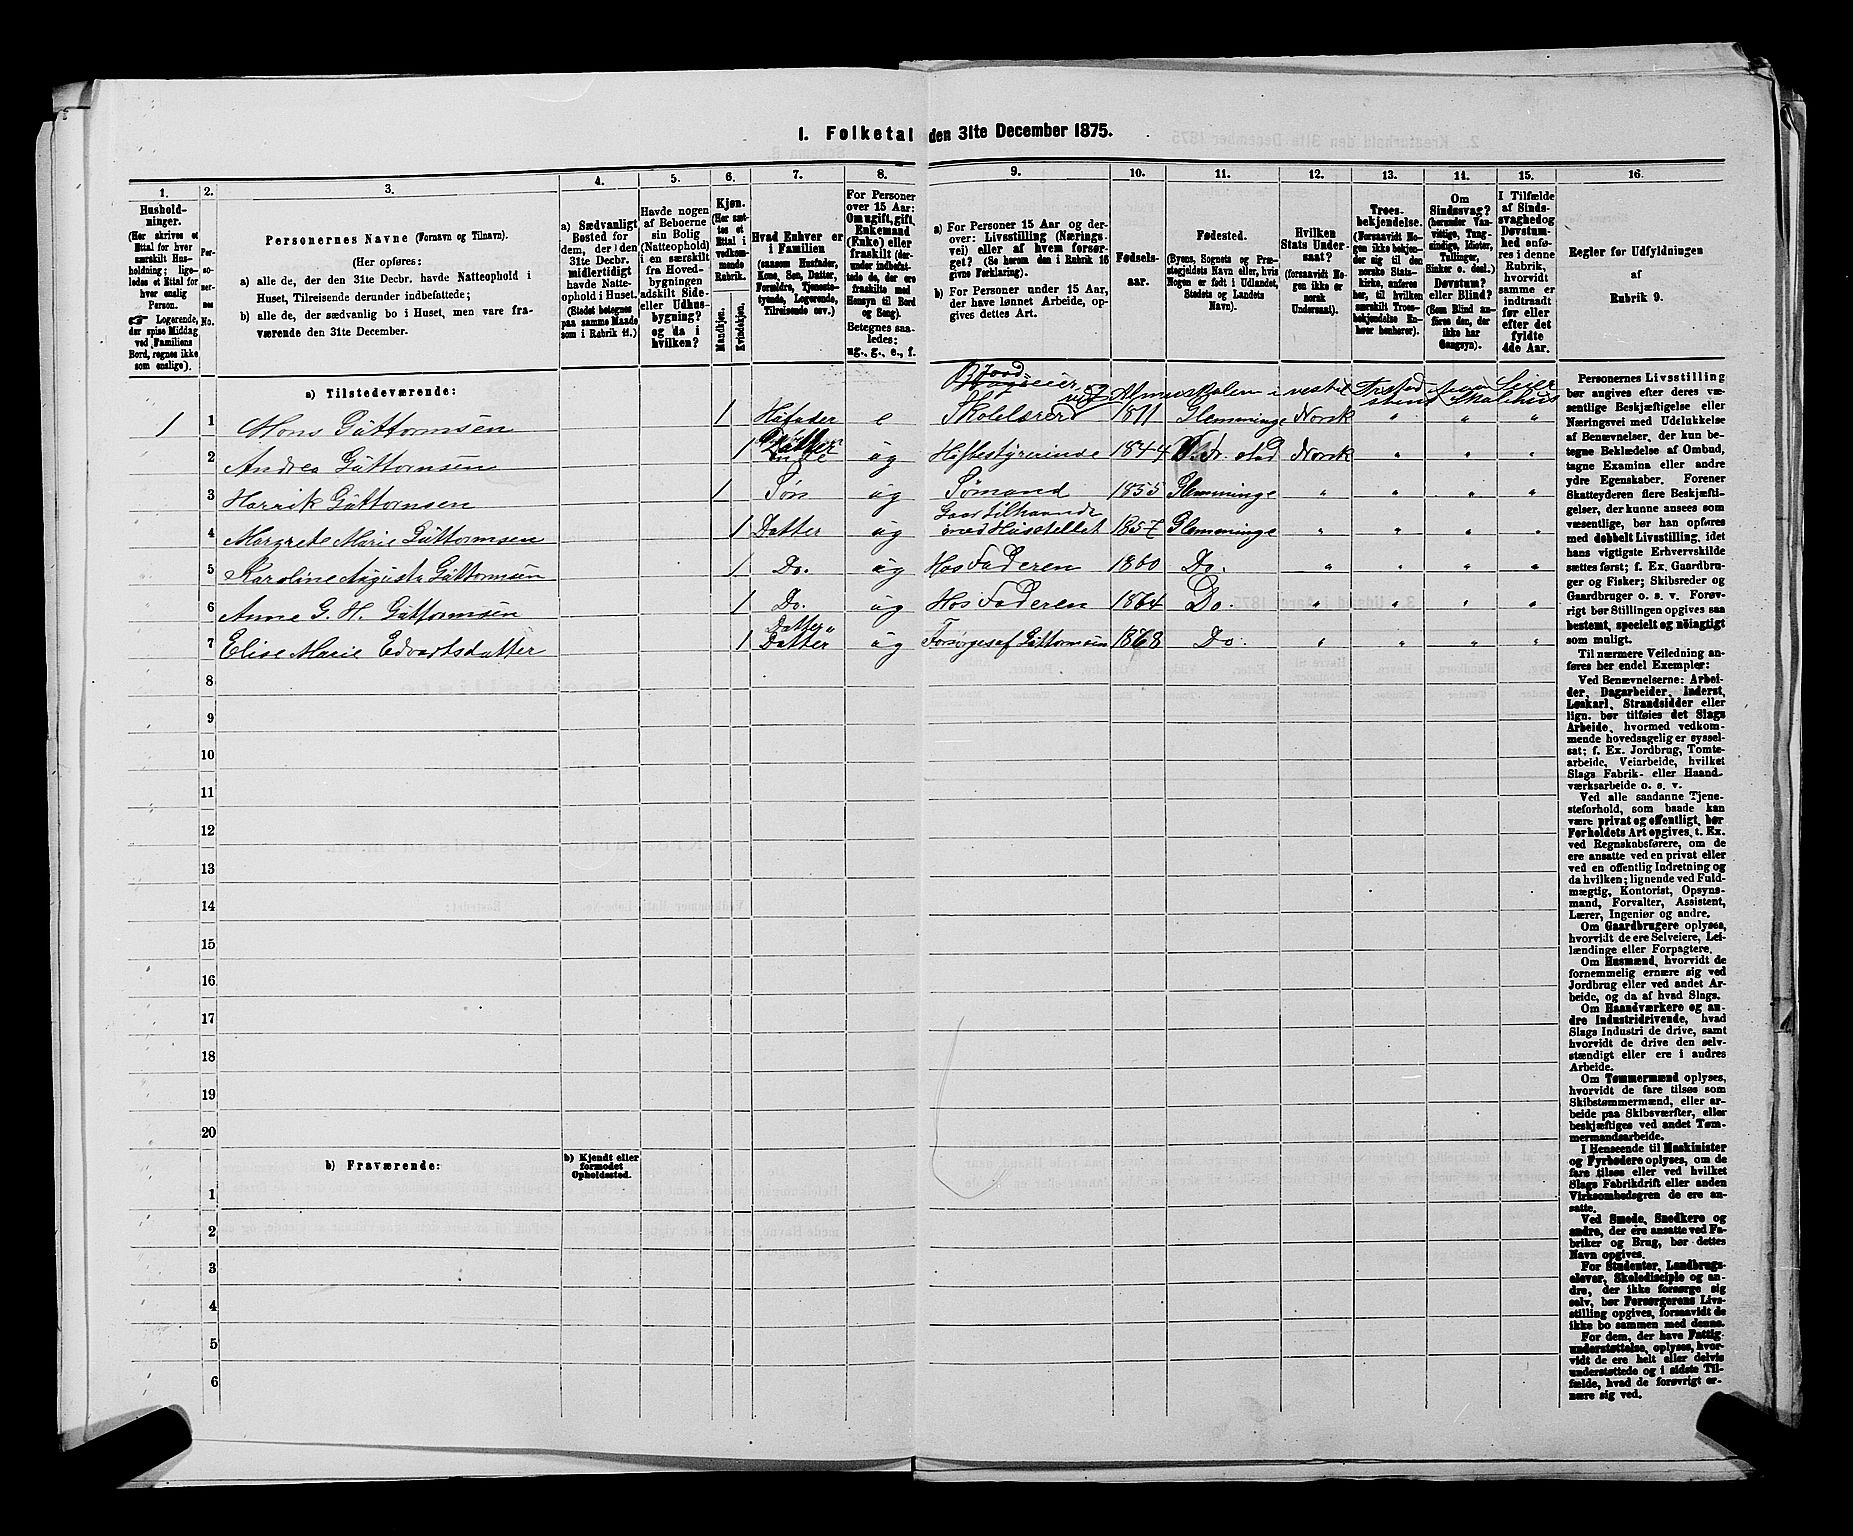 1. Folketal den 31te December 1875.
1. 2. 3. 4. 5. 6. 7. 8. 9. 10. 11. 12. 13. 14. 15. 16.
Hushold-
ninger.
(Her skrives et
Ettal for hver
særskilt Hus-
holdning; lige-
ledes et Ettal for
hver enslig
Person.
☞ Logerende,
der spise Middag
ved Familiens
Bord, regnes ikke
som enslige).
Per-
so-
ner-
nes
No.
Personernes Navne (Fornavn og Tilnavn).
(Her opføres:
a) alle de, der den 31te Decbr. havde Natteophold i
Huset, Tilreisende derunder indbefattede;
b) alle de, der sædvanlig bo i Huset, men vare fra-
værende den 31te December.
a) Sædvanligt
Bosted for
dem, der den
31te Decbr.
midlertidigt
havde Natte-
ophold i Huset.
(Stedet betegnes
paa samme Maade
som i Rubrik 11.)
Havde nogen
af Beboerne
sin Bolig
(Natteophold)
i en særskilt
fra Hoved-
bygningen
adskilt Side-
eller Udhus-
bygning?
og da i
hvilken?
Kjøn.
(Her sæt-
tes et
Ettal i
vedkom-
mende
Rubrik.
Mandkjøn.
Kvindekjøn.
Hvad Enhver er
i Familien
(saasom Husfader,
Kone, Søn, Datter,
Forældre, Tjeneste-
tyende, Logerende,
Tilreisende osv.)
For Personer
over 15 Aar:
Om ugift, gift,
Enkemand
(Enke) eller
fraskilt (der-
under indbefat-
tede de, der ere
fraskilte med
Hensyn til Bord
og Seng).
Betegnes saa-
ledes:
ug., g., e., f.
a) For Personer 15 Aar og der-
over: Livsstilling (Nærings-
vei) eller af hvem forsør-
get? (Se herom den i Rubrik 16
givne Forklaring).
b) For Personer under 15 Aar,
der have lønnet Arbeide, op-
gives dettes Art.
Fødsels-
aar.
Fødested.
(Byens, Sognets og Præ-
stegjeldets Navn eller, hvis
Nogen er født i Udlandet,
Stedets og Landets
Navn).
Hvilken
Stats Under-
saat?
(forsaavidt No-
gen ikke er
norsk
Undersaat).
Troes-
bekjendelse.
(Forsaavidt No-
gen ikke bekjen-
der sig til den
norske Stats-
kirke, anføres
her, til hvilken
særskilt Troes-
bekjendelse En-
hver henhører).
Om
Sindssvag?
(herunder Van-
vittige, Tung-
sindige, Idioter,
Tullinger,
Sinker o. desl.)
Døvstum?
eller Blind?
(Som Blind an-
føres den, der
ikke har
Gangsyn).
I Tilfælde
af Sinds-
svaghed og
Døvstum-
hed anfø-
res i denne
Rubrik,
hvorvidt
samme er
indtraadt
før eller
efter det
fyldte
4de Aar.
Regler for Udfyldningen
af
Rubrik 9.
a) Tilstedeværende:
Jord
eier
1 1 Mons Guttormsen 1 Husfader e Skolelærer 1811 Glemminge Norsk " " "
2 Andrea Guttormsen 1 Datter ug Høfbestyrerinde 1844 Fr. stad Norsk " " "
3 Henrik Guttormsen 1 Søn ug Sømand 1855 Glemminge " " " "
Gaar tilhaande
4 Margrete Marie Guttormsen 1 Datter ug med Husstellet 1857 Glemminge " " " "
5 Karoline Augusta Guttormsen 1 Do. ug Hos Faderen 1860 Do. " " " "
6 Anne G. H. Guttormsen 1 Do. ug Hos Faderen 1864 Do. " " " "
Datter
7 Elise Marie Edvartsdatter 1 Datter ug Forsørges af Guttormsen 1868 Do. " " " "
8
9
10
11
12
13
14
15
16
17
18
19
20
b) Fraværende:
b) Kjendt eller
formodet
Opholdssted.
1
2
3
4
5
6
Personernes Livsstilling
bør angives efter deres væ-
sentlige Beskjæftigelse eller
Næringsvei med Udelukkelse
af Benævnelser, der kun be-
tegne Beklædelse af Ombud,
tagne Examina eller andre
ydre Egenskaber. Forener
Skatteyderen flere Beskjæfti-
gelser, der kunne ansees som
væsentlige, bør han opføres
med dobbelt Livsstilling, idet
hans vigtigste Erhvervskilde
sættes først; f. Ex. Gaardbru-
ger og Fisker; Skibsreder og
Gaardbruger o. s. v. Forøv-
rigt bør Stillingen opgives saa
bestemt, specielt og nøiagtigt
som muligt.
Til nærmere Veiledning an-
føres her endel Exempler:
Ved Benævnelserne: Arbei-
der, Dagarbeider, Inderst,
Løskarl, Strandsidder eller
lign. bør tilføies det Slags
Arbeide, hvormed vedkom-
mende hovedsagelig er syssel-
sat; f. Ex. Jordbrug, Tomte-
arbeide, Veiarbeide, hvilket
Slags Fabrik- eller Haand-
værksarbeide o. s. v.
Ved alle saadanne Tjene-
steforhold, som baade kan
være privat og offentligt, bør
Forholdets Art opgives, t. Ex.
ved Regnskabsførere, om de
ere ansatte ved en privat eller
ved en offentlig Indretning og
da hvilken; lignende ved Fuld-
mægtig, Kontorist, Opsyns-
mand, Forvalter, Assistent,
Lærer, Ingeniør og andre.
Om Gaardbrugere oplyses,
hvorvidt de ere Selveiere, Lei-
lændinge eller Forpagtere.
Om Husmænd, hvorvidt de
fornemmelig ernære sig ved
Jordbrug eller ved andet Ar-
beide, og da af hvad Slags.
Om Haandværkere og an-
dre Industridrivende, hvad
Slags Industri de drive, samt
hvorvidt de drive den selv-
stændigt eller ere i andres
Arbeide.
Om Tømmermænd oplyses,
hvorvidt de fare tilsøs som
Skibstømmermænd, eller ar-
beide paa Skibsværfter, eller
beskjæftiges ved andet Tøm-
mermandsarbeide.
I Henseende til Maskinister
og Fyrbødere oplyses, om de
fare tilsøs eller ved hvilket
Slags Fabrikdrift eller anden
Virksomhedsgren de ere an-
satte.
Ved Smede, Snedkere og
andre, der ere ansatte ved Fa-
briker og Brug, bør dettes
Navn opgives.
For Studenter, Landbrugs-
elever, Skoledisciple og an-
dre, der ikke forsørge sig
selv, bør Forsørgerens Livs-
stilling opgives, forsaavidt de
ikke bo sammen med denne.
For dem, der have Fattig-
understøttelse, oplyses, hvor-
vidt de ere helt eller delvis
understøttede og i sidste Til-
fælde, hvad de forøvrigt er-
nære sig ved.